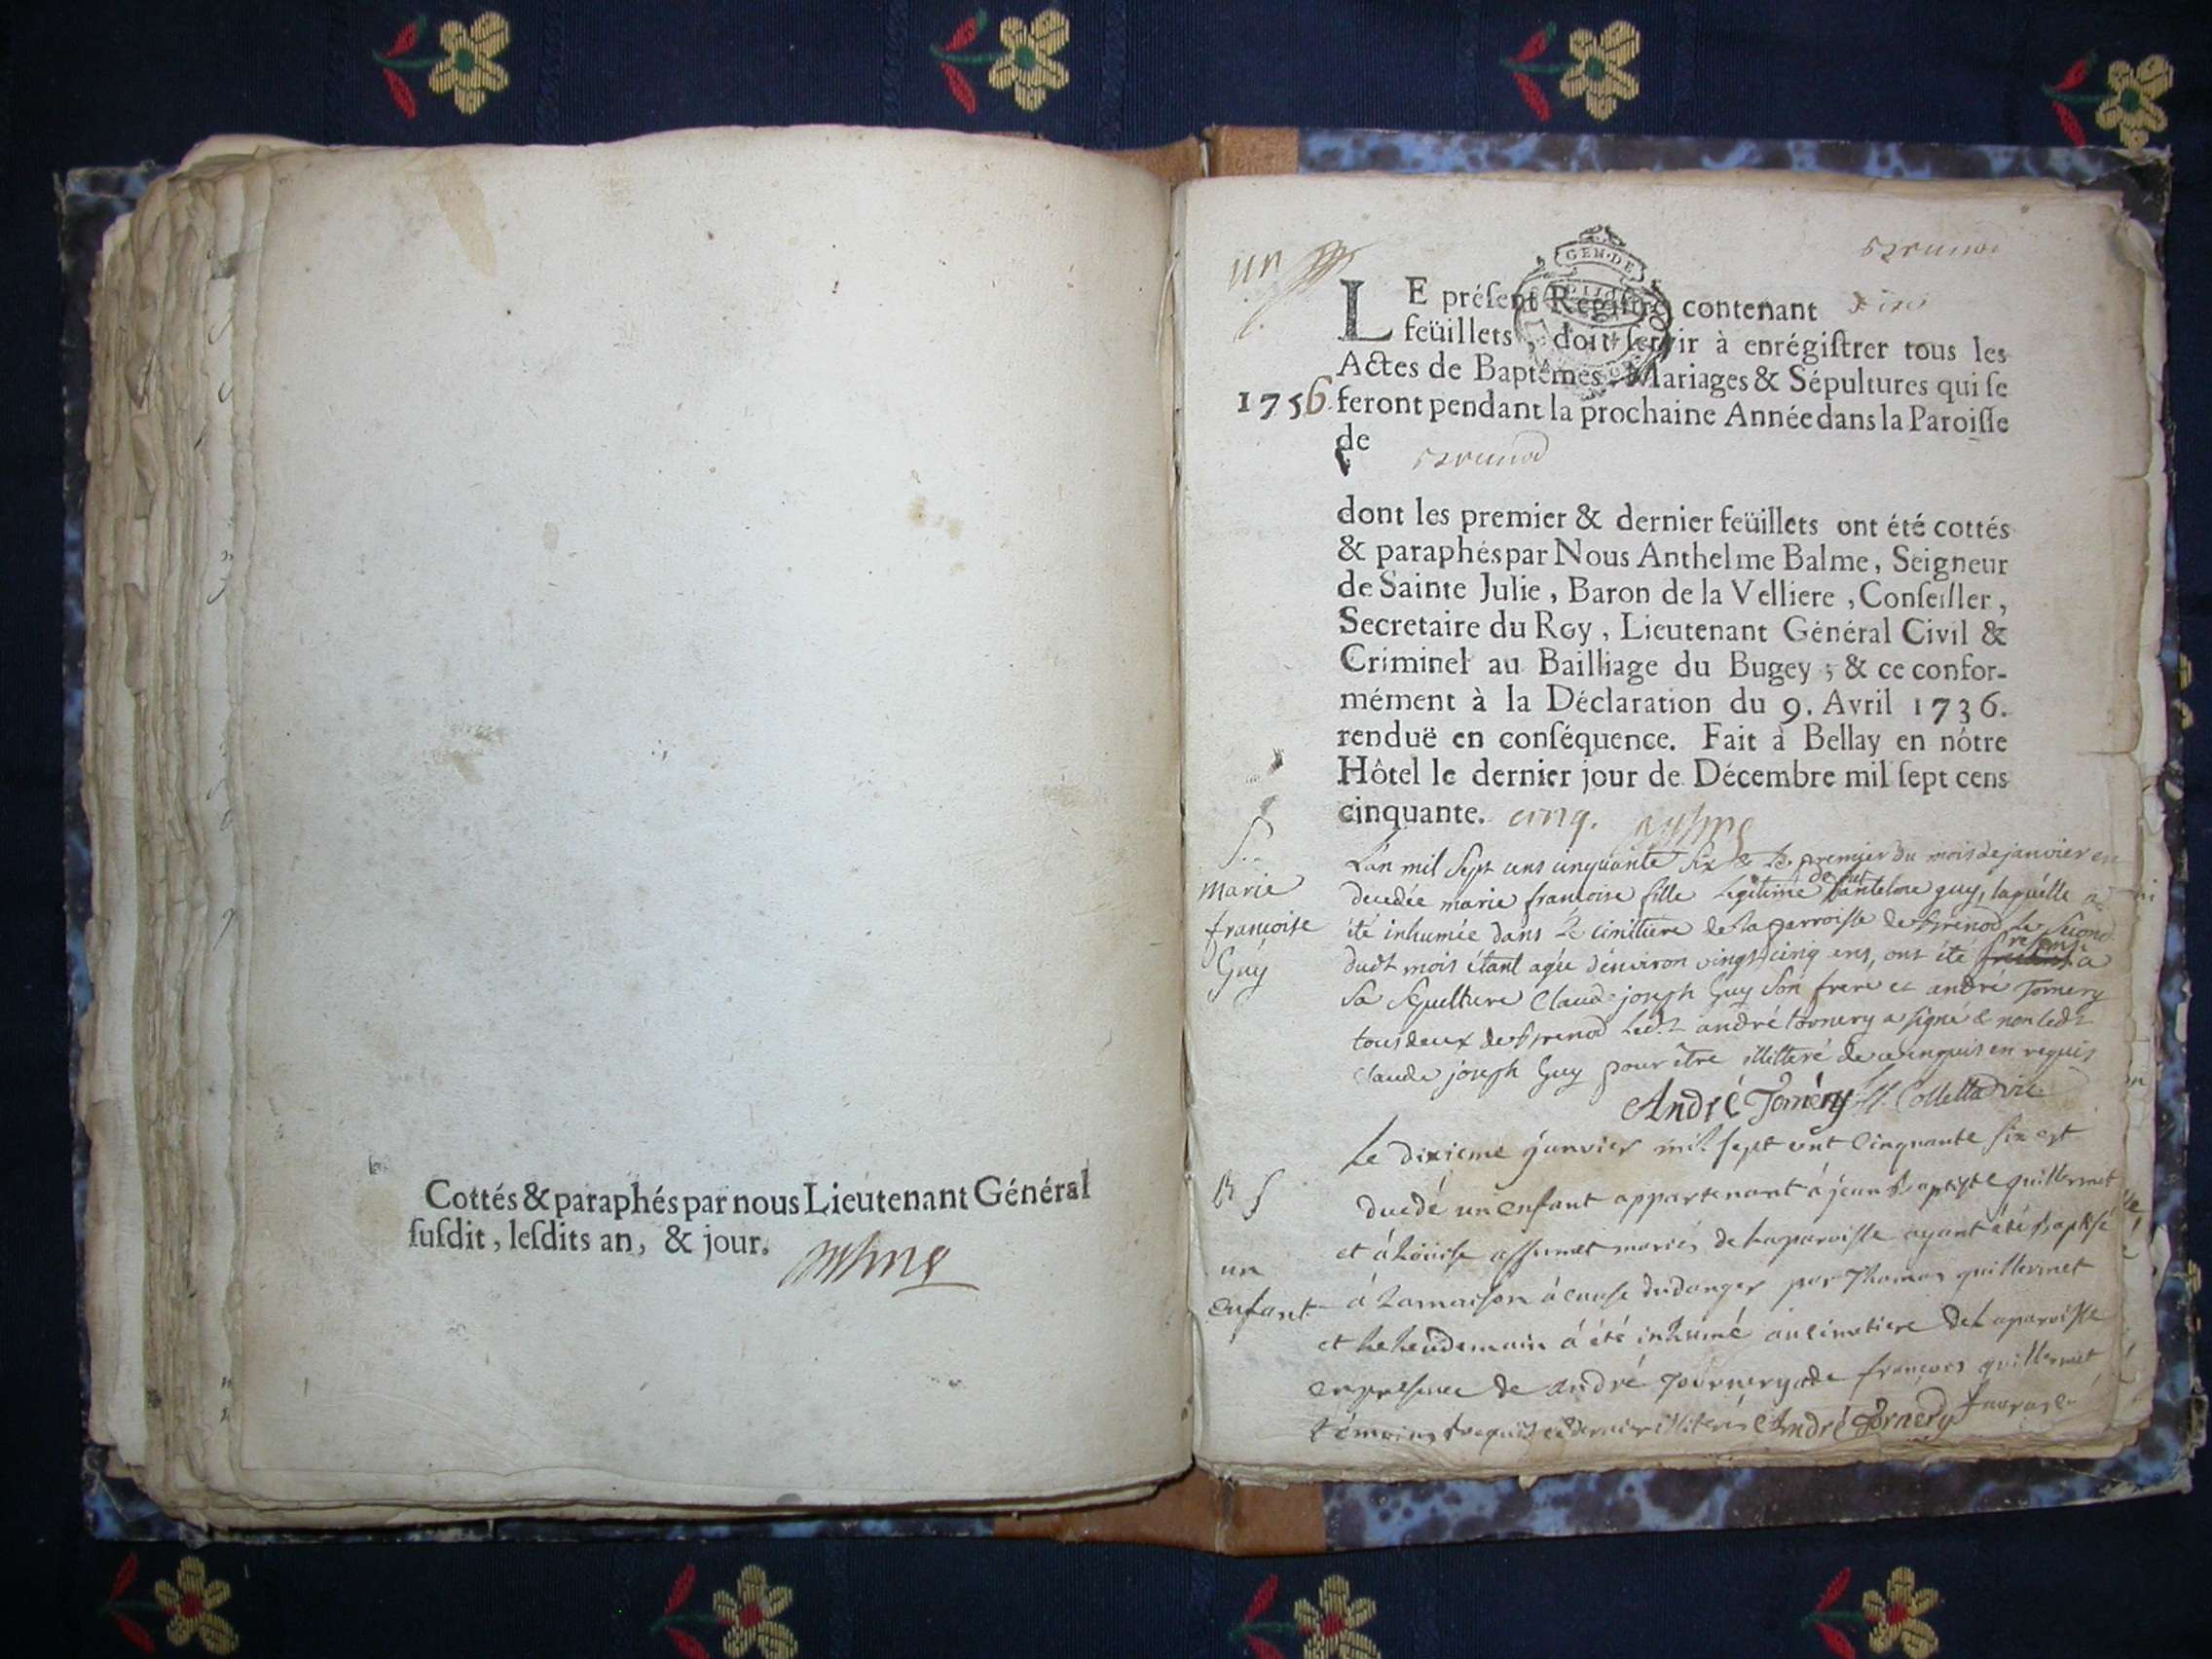 Cottés & paraphés par nous Lieutenant Général
suſdit, leſdits an, & jour.
un
GEN·DE
LE préſent Regiſtre contenant
feüillets, doit ſervir à enrégiſtrer tous les
Actes de Baptêmes, Mariages & Sépultures qui ſe
1756. feront pendant la prochaine Année dans la Paroiſſe
de
dont les premier & dernier feüillets ont été cottés
& paraphés par Nous Anthelme Balme, Seigneur
de Sainte Julie, Baron de la Velliere, Conſeiller,
Secretaire du Roy, Lieutenant Général Civil &
Criminel au Bailliage du Bugey; & ce confor-
mément à la Déclaration du 9. Avril 1736.
renduë en conſéquence. Fait à Bellay en nôtre
Hôtel le dernier jour de Décembre mil ſept cens
cinquante. cinq.
S..
marie
francoise
Guy
L'an mil Sept cens cinquante Six & Le premier du mois de janvier est
decedée marie francoise fille Legitime de fut pantelme guy, laquelle a
été inhumée dans Le cimitiere de la parroisse de brenod Le Second
dudt mois étant agée d'environ vingt cinq ans, ont été presens a
Sa Sepulture Claude joseph Guy Son frere et andré Tornery
tous deux de brenod Ledt andré tornery a signé & non ledt
Claude joseph Guy pour être illitteré de ce enquis en requis
André Tornéry Colletta vic.
B S
un
enfant
Le dixieme janvier mil sept cent cinquante six est
decedé un enfant appartenant à jean baptiste guillermet
et à Loüise assumet mariés de la paroisse ayant été baptisé
à la maison à cause du danger par Thomas guillermet
et le lendemain à été inhumé au cimetiere de la paroisse
en presence de andré tournery et de francois guillermet
témoins requis ce dernier illiteré André Tornery favrase